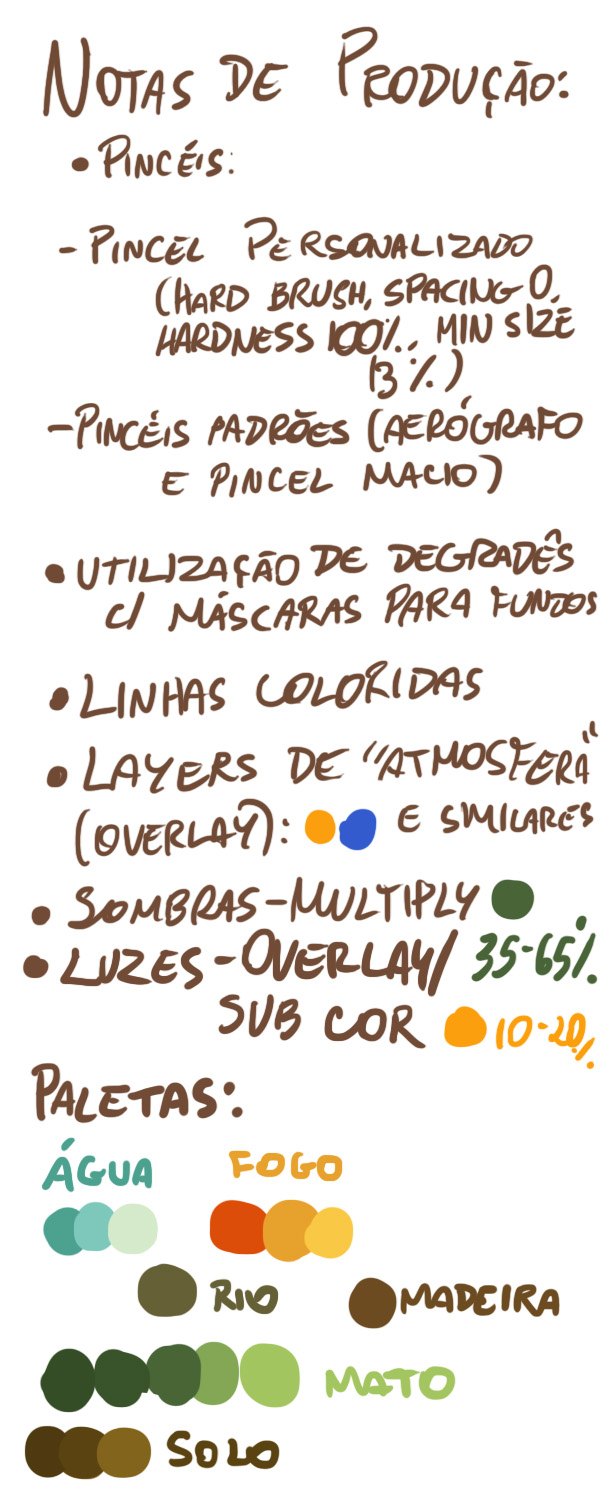 NOTAS DE PRODUÇÃO:
• PINCÉIS:
- PINCEL PERSONALIZADO
(HARD BRUSH, SPACING 0,
HARDNESS 100%., MIN SIZE
13%)
- PINCÉIS PADRÕES (AERÓGRAFO
E PINCEL MACIO)
• UTILIZAÇÃO DE DEGRADÊS
C/ MÁSCARAS PARA FUNDOS
• LINHAS COLORIDAS
• LAYERS DE "ATMOSFERA"
(OVERLAY): E SIMILARES
• SOMBRAS - MULTIPLY
• LUZES - OVERLAY/ 35-65%
SUB COR 10-20%
PALETAS:
ÁGUA FOGO
RIO MADEIRA
MATO
SOLO